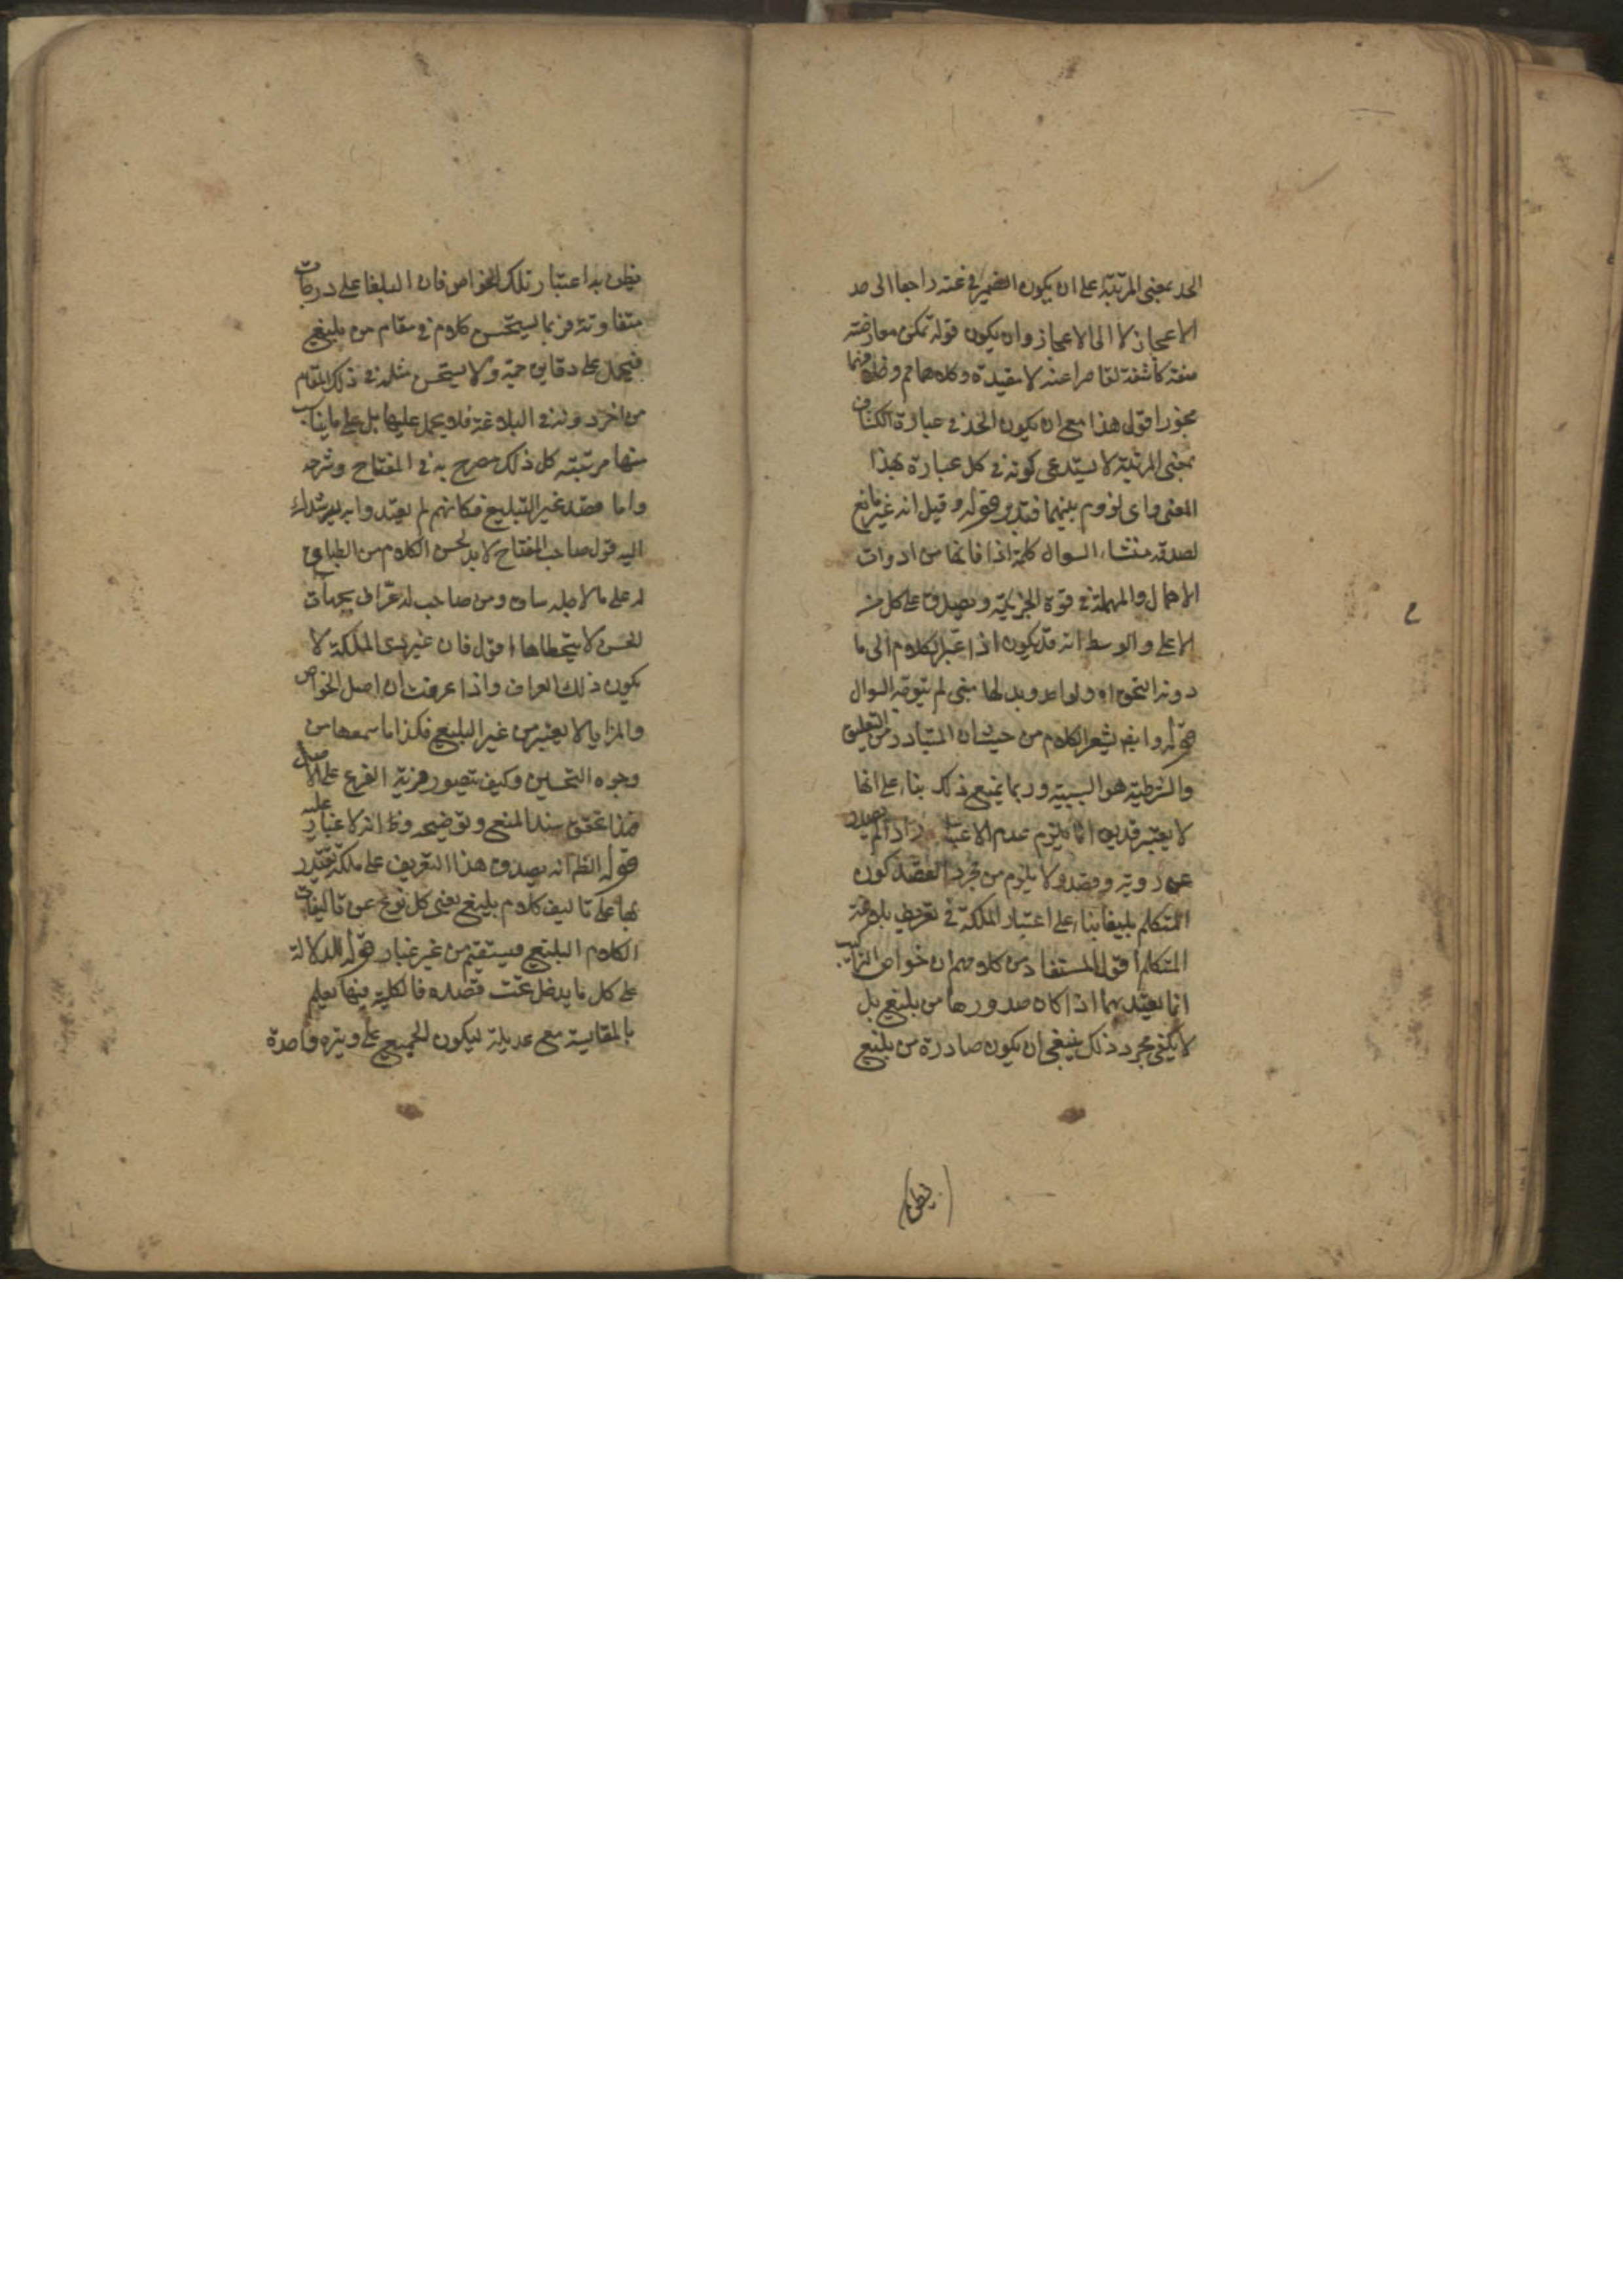 الحد بمعنى المرتبة على ان يكون الضمير في عنه راجعا الى حد
الاعجاز لا الى الاعجاز وان يكون قوله تمكن معارضته
صفة كاشفة لقاصرا عنه لا مقيدة وكلاهما مم وظاهر
بمجوز اقول هذا مع ان يكون الحد في عبارة الكشاف
بمعنى المرتبة لا يستدعى كونه في كل عبارة بهذا
المعنى واى لزوم بينهما فتدبر قوله وقيل انه غير مانع
لصدقه منشاء السوال كلمة اذا فانها من ادوات
الاهمال والمهملة في قوة الجزئية ويصدق على كل من
الاعلى والوسط انه قد يكون اذا غير الكلام الى ما
دونه التحق اه ولواحد وبدلها متى لم يتوجه السوال
قوله وايضا يشعر الكلام من حيث ان المتبادر من التعليق
والشرطية هو السببية وربما يمنع ذلك بناء على انها
لا يعتبر قد يق انما يلزم عدم الاعتبا اذ الم يصدر
عن روية وقصد ولا يلزم من مجرد القصد كون
المتكلم بليغا بناء على اعتبار الملكة في تعريف بلاغة
المتكلم اقول المستفاد من كلامهم ان خواص التراكيب
انما يعتد بها اذا كان صدورها من بليغ بل
لا يكفى مجرد ذلك ينبغى ان يكون صادرة من بليغ
يظن به اعتبار تلك الخواص فان البلغا على درجات
متفاوتة فربما يستحسن كلام في مقام من بليغ
فيحمل على دقايق جمة ولا يستحسن مثله في ذلك المقام
من اخر دونه في البلاغة فلا يحمل عليها بل على ما يناسب
منها مرتبته كل ذلك مصرح به في المفتاح وشرحه
واما قصد غير البليغ فكانهم لم يعتدوا به يرشدك
اليه قول صاحب المفتاح لا بد لحسن الكلام من انطباق
له على ما لاجله ساق ومن صاحب له عراف بجهات
الحسن لا يتخطاها اقول فان غير ذى الملكة لا
يكون ذلك العراف واذا عرفت ان اصل الخواص
والمزايا لا يعتبر من غير البليغ فكذا ما سمعها من
وجوه التحسين وكيف يتصور مزية الفرع على الاصل
هذا تحقق سند المنع وتوضيحه وظ انه لا غبار عليه
قوله الظ انه يصدق هذا التعريف على ملكة يقتدر
بها على تاليف كلام بليغ يعنى كل نوع من تاليفات
الكلام البليغ فيستقيم من غير غبار قوله للدلالة
على كل ما يدخل تحت قصده فالكلية فيها يعلم
بالمقايسة مع عديله ليكون الجميع على وتيرة واحدة
يظن